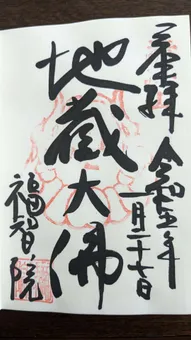 奉拝
令和五年
月二十七日
地蔵大佛
福智院